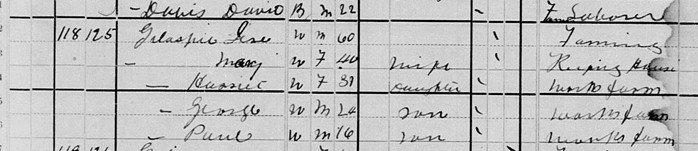 – Davis David B M 22 Farm Laborer
118 125 Gilaspie W M 60 Farming
– Mary W F 40 wife Keeping House
– Harriet W F 31 Daughter works farm
– George W M 24 son works farm
– Paul W M 16 son works farm
118 121